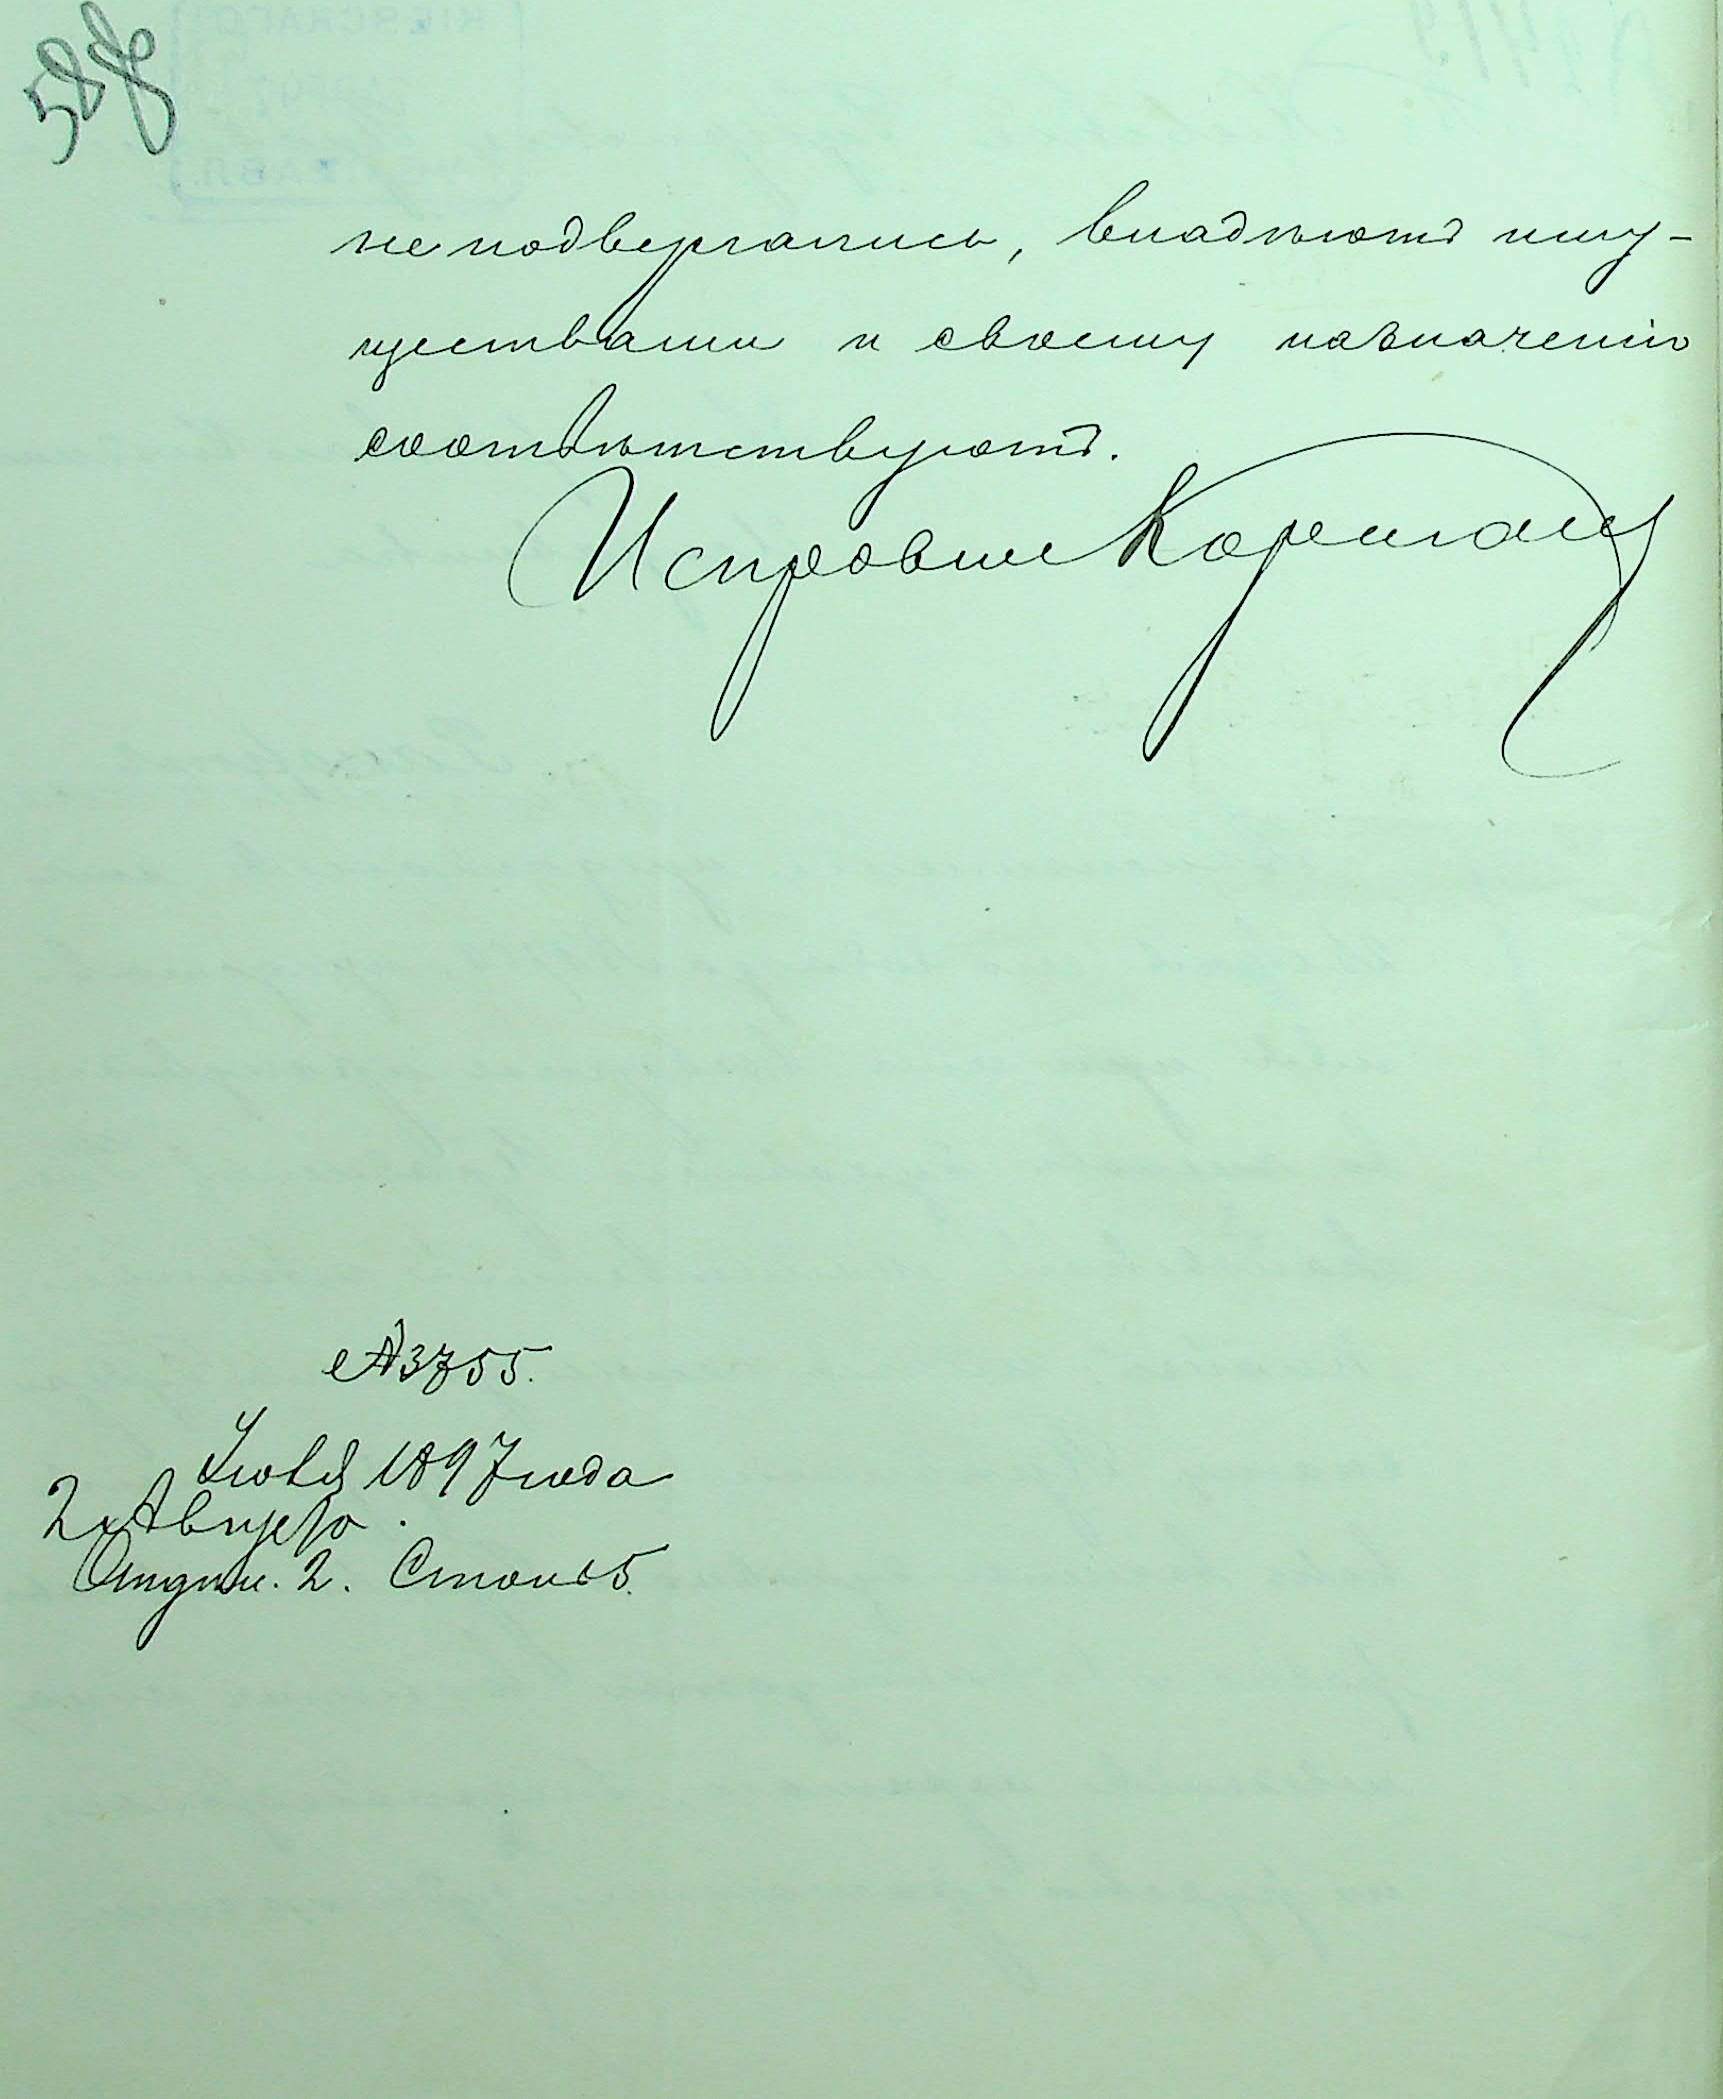 588
не подвергались, владѣютъ иму-
ществами и своему назначенію
соотвѣтствуютъ.
Исправник
№ 3755.
Іюля 1897 года
2 Августа.
Отдѣл. 2. Столъ 5.